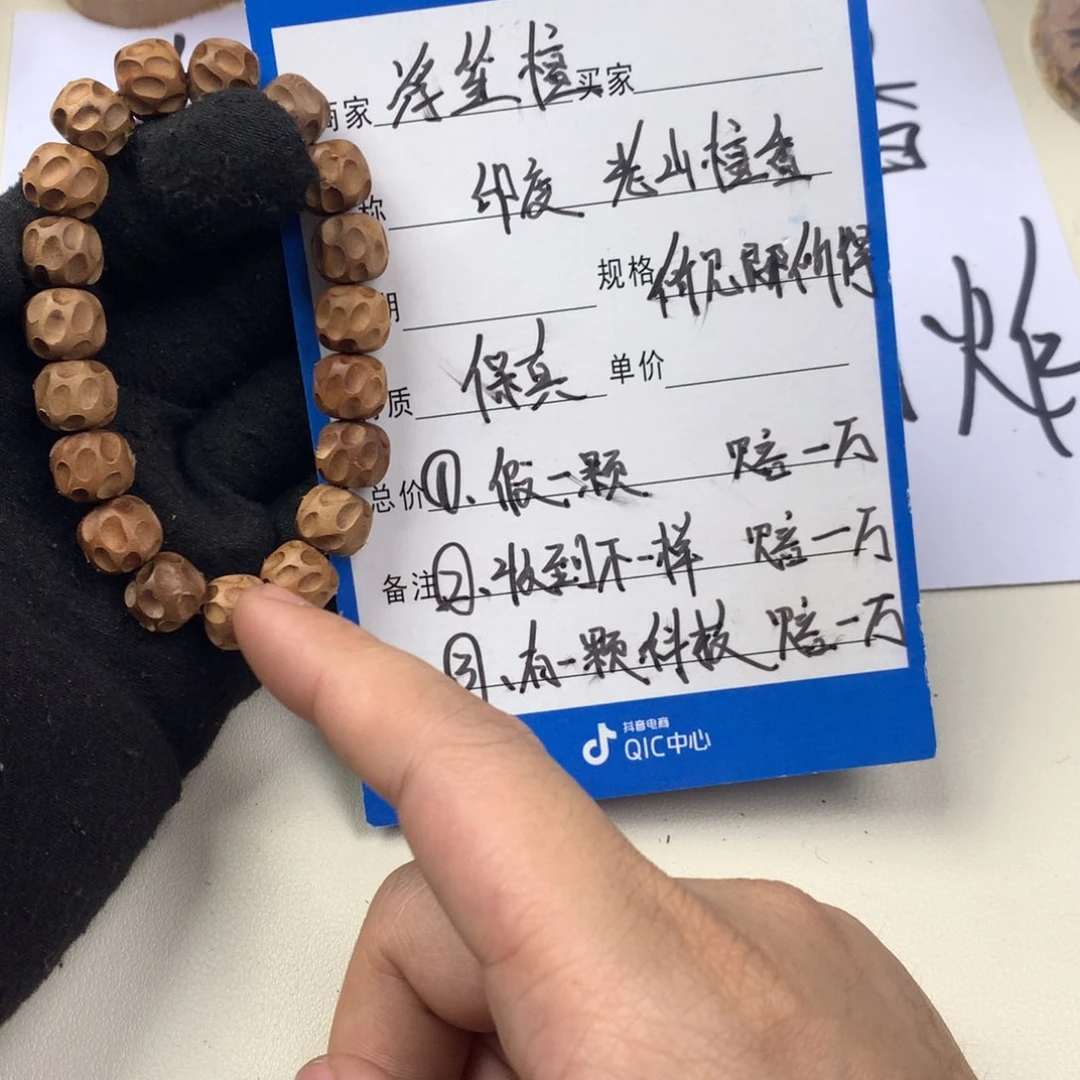 商家 浮笙檀 买家
称 印度 老山檀香
期 规格 所见即所得
质 保真 单价
总价 ①、假一颗 赔一万
备注 ②、收到不一样 赔一万
③、有一颗科技 赔一万
抖音电商
QIC中心
炸